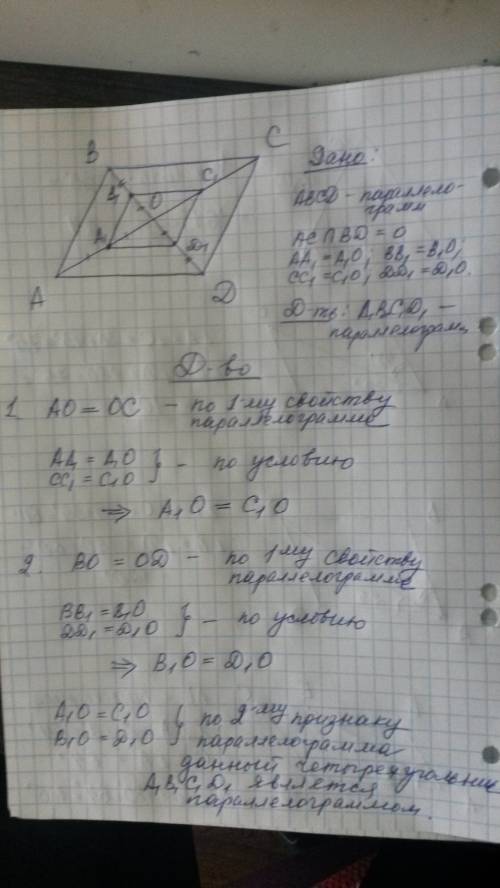 B
C
B₁
O
C₁
A₁
D₁
A
D
Дано:
ABCD - параллело-
грамм
AC∩BD = O
AA₁ = A₁O; BB₁ = B₁O;
CC₁ = C₁O; DD₁ = D₁O.
Д-ть: A₁B₁C₁D₁ —
параллелограмм
Д-во
1. AO = OC - по 1-му свойству
параллелограмма
AA₁ = A₁O
CC₁ = C₁O } - по условию
⇒ A₁O = C₁O
2. BO = OD - по 1-му свойству
параллелограмма
BB₁ = B₁O
DD₁ = D₁O } - по условию
⇒ B₁O = D₁O
A₁O = C₁O
B₁O = D₁O } по 2-му признаку
параллелограмма
данный четырехугольник
A₁B₁C₁D₁ является
параллелограммом.